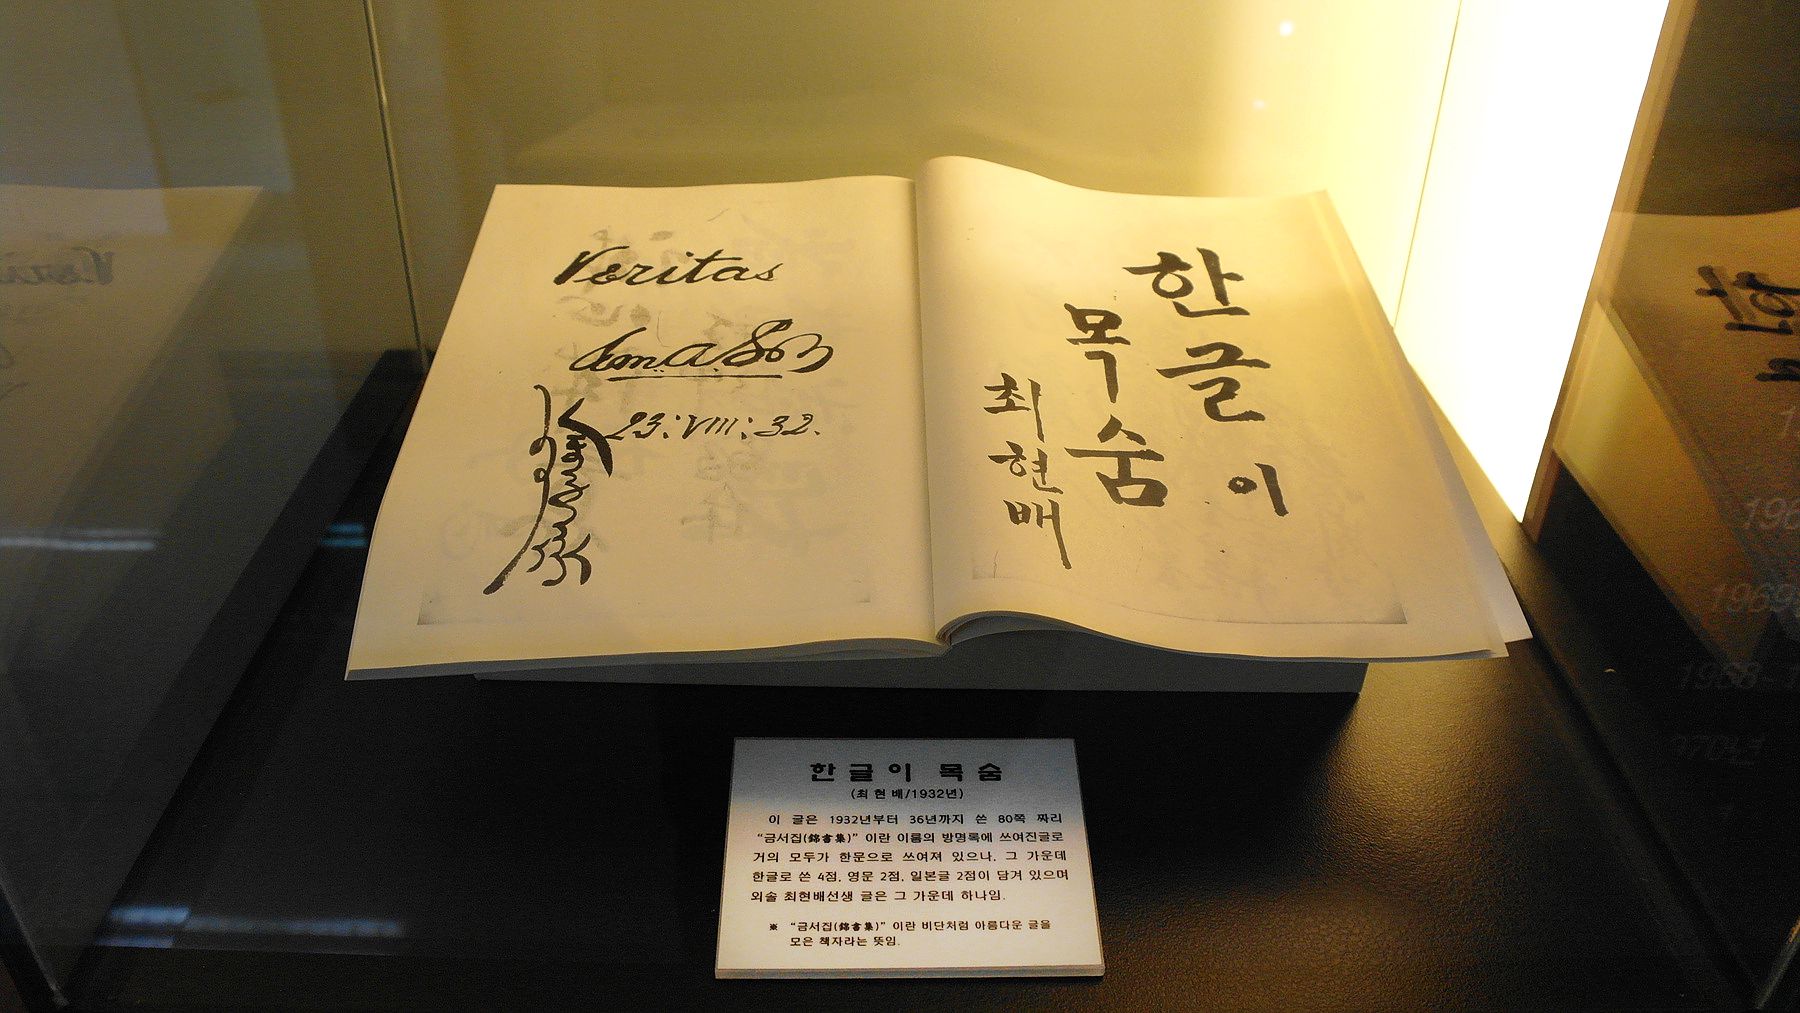 Veritas
23:VIII:32.
한글이
목숨
최현배
한글이 목숨
(최현배/1932년)
이 글은 1932년부터 36년까지 쓴 80쪽 짜리
“금서집(錦書集)” 이란 이름의 방명록에 쓰여진글로
거의 모두가 한문으로 쓰여져 있으나, 그 가운데
한글로 쓴 4점, 영문 2점, 일본글 2점이 담겨 있으며
외솔 최현배선생 글은 그 가운데 하나임.
※ “금서집(錦書集)” 이란 비단처럼 아름다운 글을
모은 책자라는 뜻임.